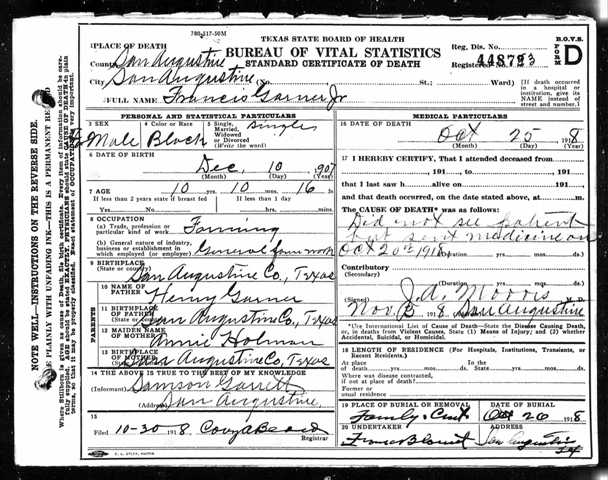 780-517-50M
TEXAS STATE BOARD OF HEALTH
BUREAU OF VITAL STATISTICS
STANDARD CERTIFICATE OF DEATH
Reg. Dis. No.
Registered No. 448783
B.O.V.S.
FORM D
PLACE OF DEATH
County San Augustine
City San Augustine (No. St.; Ward)
[If death occurred in a hospital or institution, give its NAME instead of street and number.]
FULL NAME Francis Garner Jr
PERSONAL AND STATISTICAL PARTICULARS
3 SEX Male
4 Color or Race Black
5 Single, Married, Widowed or Divorced (Write the word) Single
6 DATE OF BIRTH
Dec, 10 1907
(Month) (Day) (Year)
7 AGE 10 yrs. 10 mos. 16 ds.
If less than 2 years state if breast fed
If less than 1 day
Yes No hrs. min.
8 OCCUPATION
(a) Trade, profession or particular kind of work Farming
(b) General nature of industry, business or establishment in which employed (or employer) General farm work
9 BIRTHPLACE
(State or county) San Augustine Co, Texas
PARENTS
10 NAME OF FATHER Henry Garner
11 BIRTHPLACE OF FATHER
(State or county) San Augustine Co, Texas
12 MAIDEN NAME OF MOTHER Annie Holman
13 BIRTHPLACE OF MOTHER
(State or county) San Augustine Co, Texas
14 THE ABOVE IS TRUE TO THE BEST OF MY KNOWLEDGE
(Informant) Samson Garrett
(Address) San Augustine
15
Filed 10-30 1918
Registrar
MEDICAL PARTICULARS
16 DATE OF DEATH
Oct 25 1918
(Month) (Day) (Year)
17 I HEREBY CERTIFY, That I attended deceased from
191 to 191
that I last saw h alive on 191
and that death occurred, on the date stated above, at m.
The CAUSE OF DEATH* was as follows:
Did not see patient
but sent medicine on
Oct 20th 1918 (Duration) yrs. mos. ds.
Contributory
(Secondary)
(Duration) yrs. mos. ds.
(Signed) J. A. Morris
Nov. 1918 San Augustine
*Use International List of Cause of Death—State the Disease Causing Death, or, in deaths from Violent Causes, State (1) Means of Injury; and (2) whether Accidental, Suicidal, or Homicidal.
18 LENGTH OF RESIDENCE (For Hospitals, Institutions, Transients, or Recent Residents.)
At place of death yrs. mos. ds. In the State yrs. mos. ds.
Where was disease contracted, if not at place of death?
Former or usual residence
19 PLACE OF BURIAL OR REMOVAL
DATE OF BURIAL
Family Oct 26 1918
20 UNDERTAKER
ADDRESS
San Augustine
NOTE WELL—INSTRUCTIONS ON THE REVERSE SIDE.